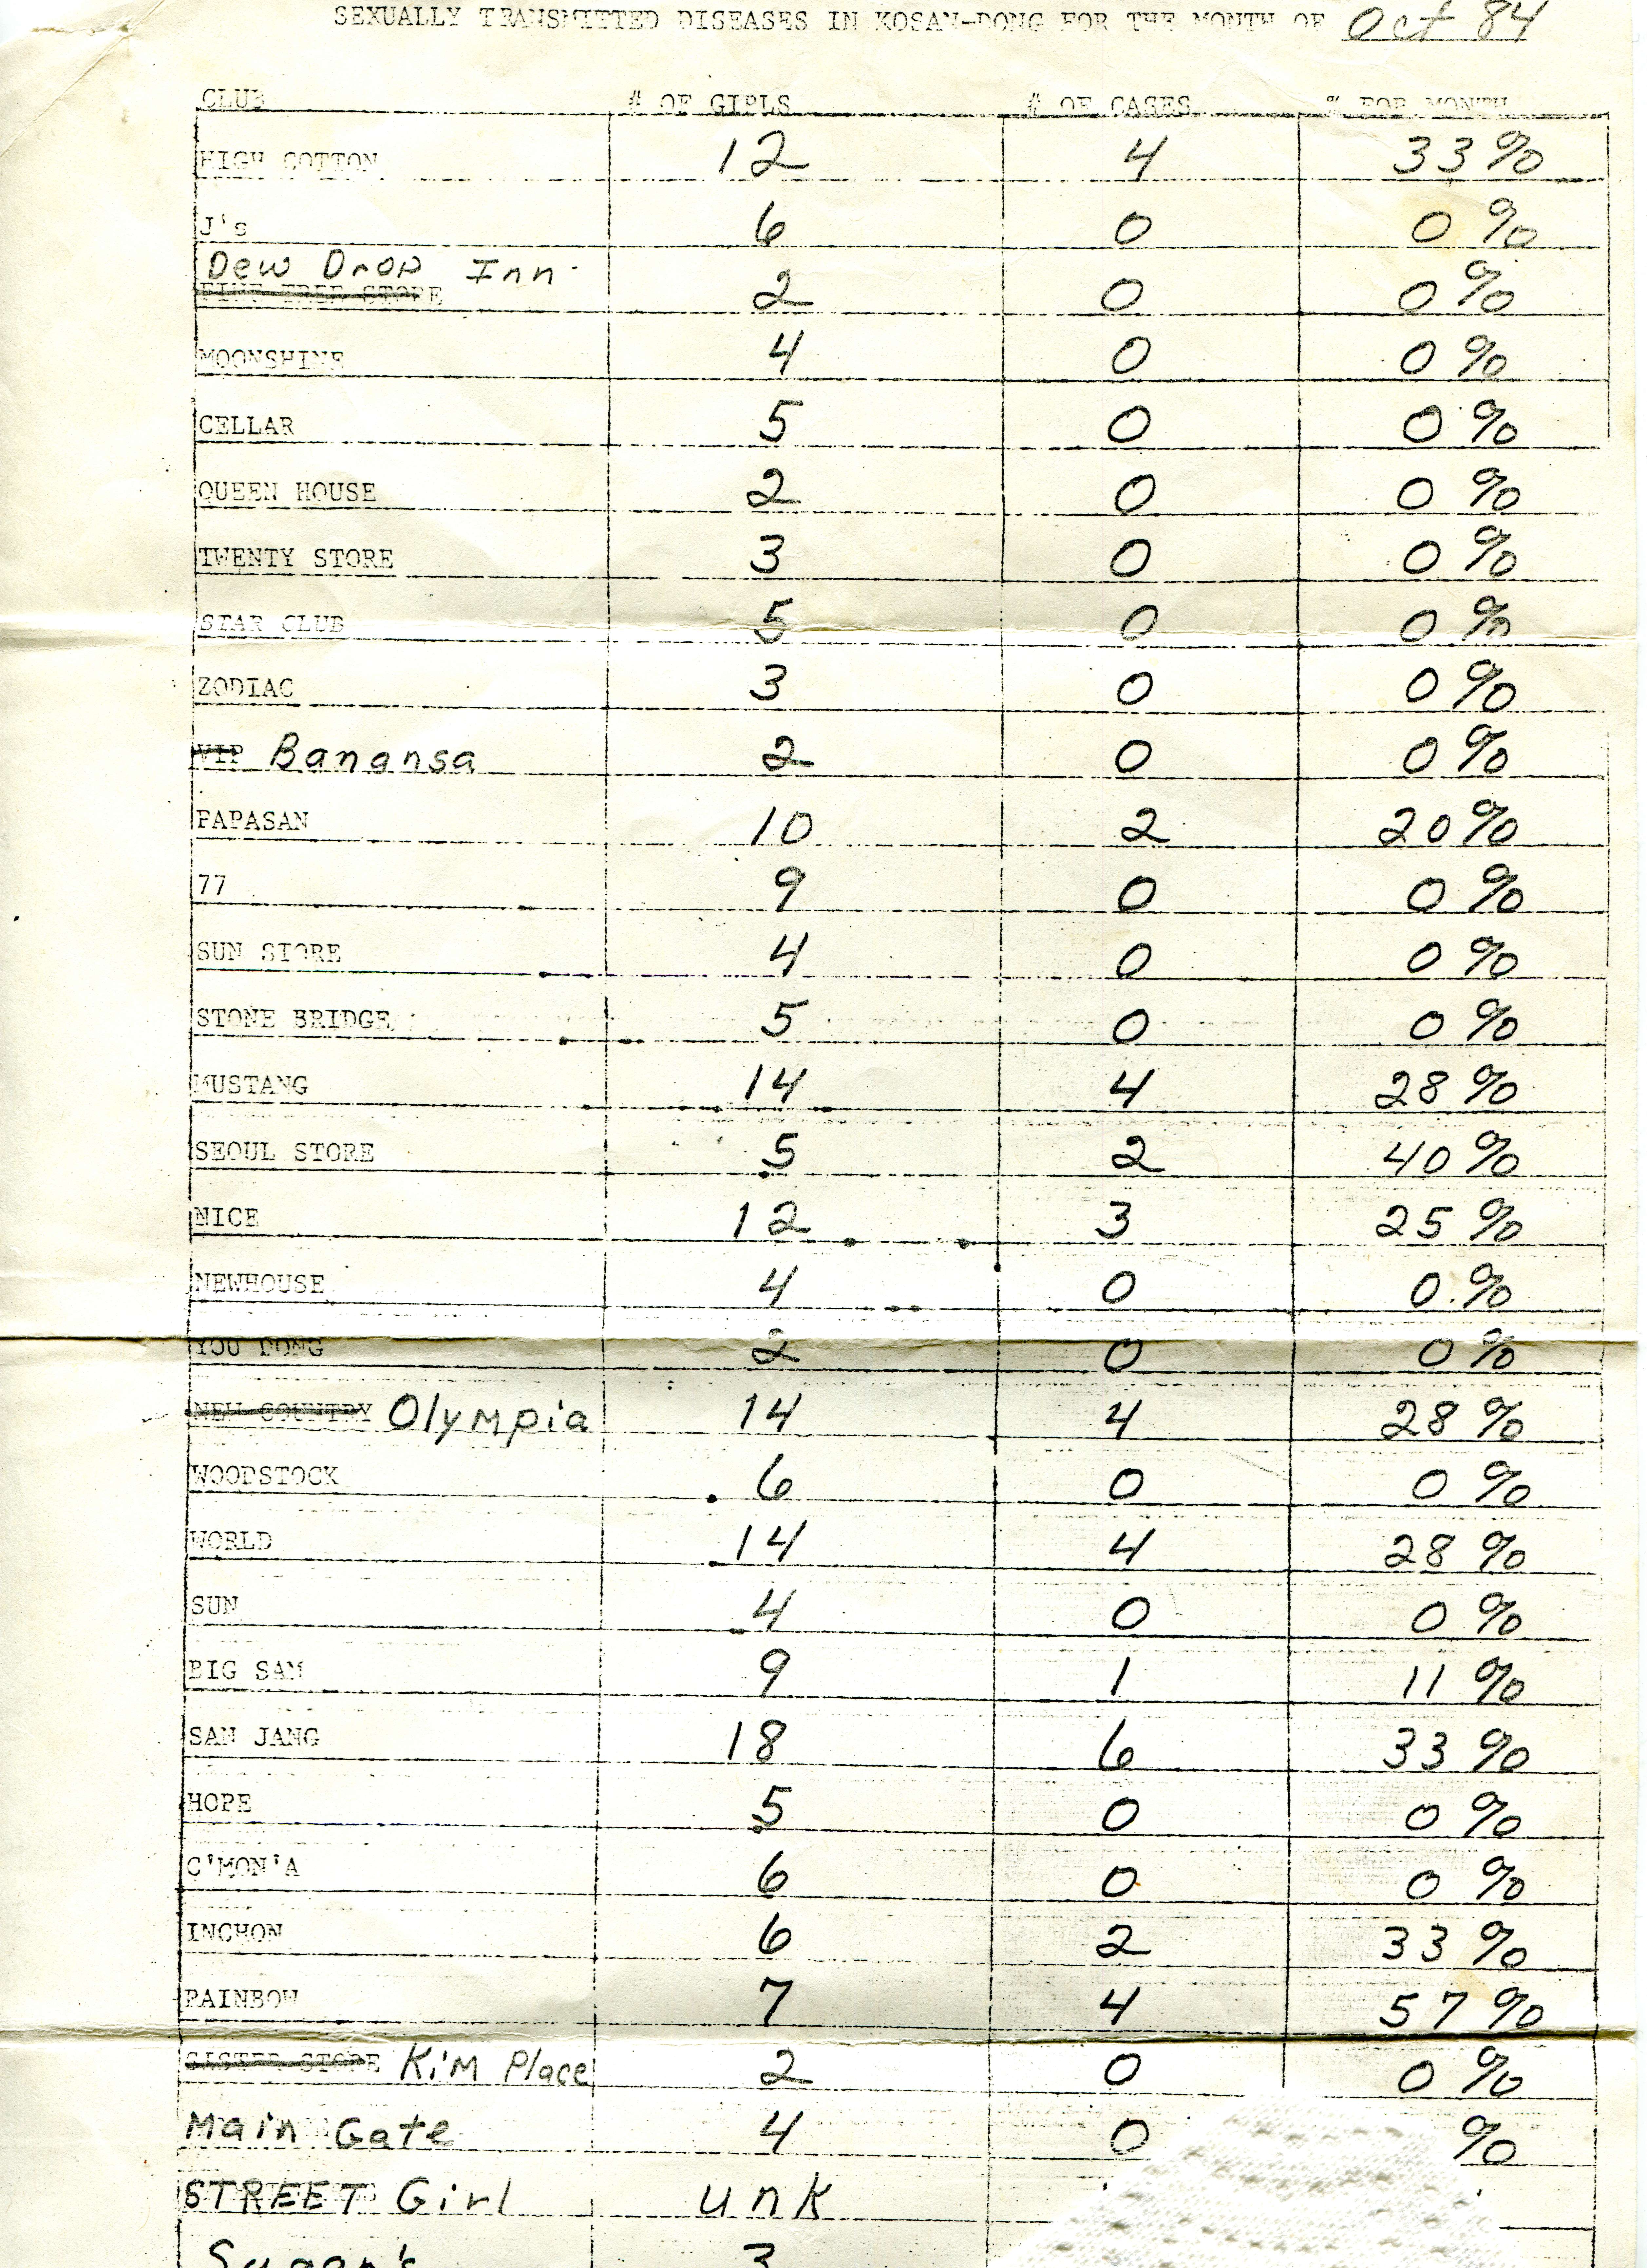 SEXUALLY TRANSMITTED DISEASES IN KOSAN-DONG FOR THE MONTH OF Oct 84
CLUB # OF GIRLS # OF CASES % FOR MONTH
HIGH COTTON 12 4 33%
J's 6 0 0%
Dew Drop Inn
PINE TREE STORE 2 0 0%
MOONSHINE 4 0 0%
CELLAR 5 0 0%
QUEEN HOUSE 2 0 0%
TWENTY STORE 3 0 0%
STAR CLUB 5 0 0%
ZODIAC 3 0 0%
VIP Banansa 2 0 0%
PAPASAN 10 2 20%
77 9 0 0%
SUN STORE 4 0 0%
STONE BRIDGE 5 0 0%
MUSTANG 14 4 28%
SEOUL STORE 5 2 40%
NICE 12 3 25%
NEWHOUSE 4 0 0%
YOU DONG 2 0 0%
NEW COUNTRY Olympia 14 4 28%
WOODSTOCK 6 0 0%
WORLD 14 4 28%
SUN 4 0 0%
BIG SAM 9 1 11%
SAN JANG 18 6 33%
HOPE 5 0 0%
C'MON'A 6 0 0%
INCHON 6 2 33%
RAINBOW 7 4 57%
SISTER STORE KiM Place 2 0 0%
Main Gate 4 0 %
STREET Girl unk
3